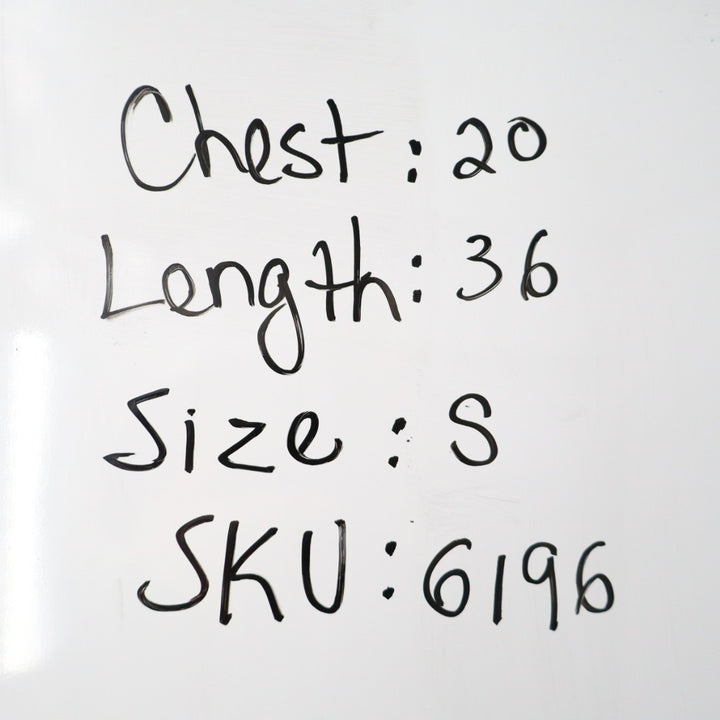 Chest: 20
Length: 36
Size: S
SKU: 6196